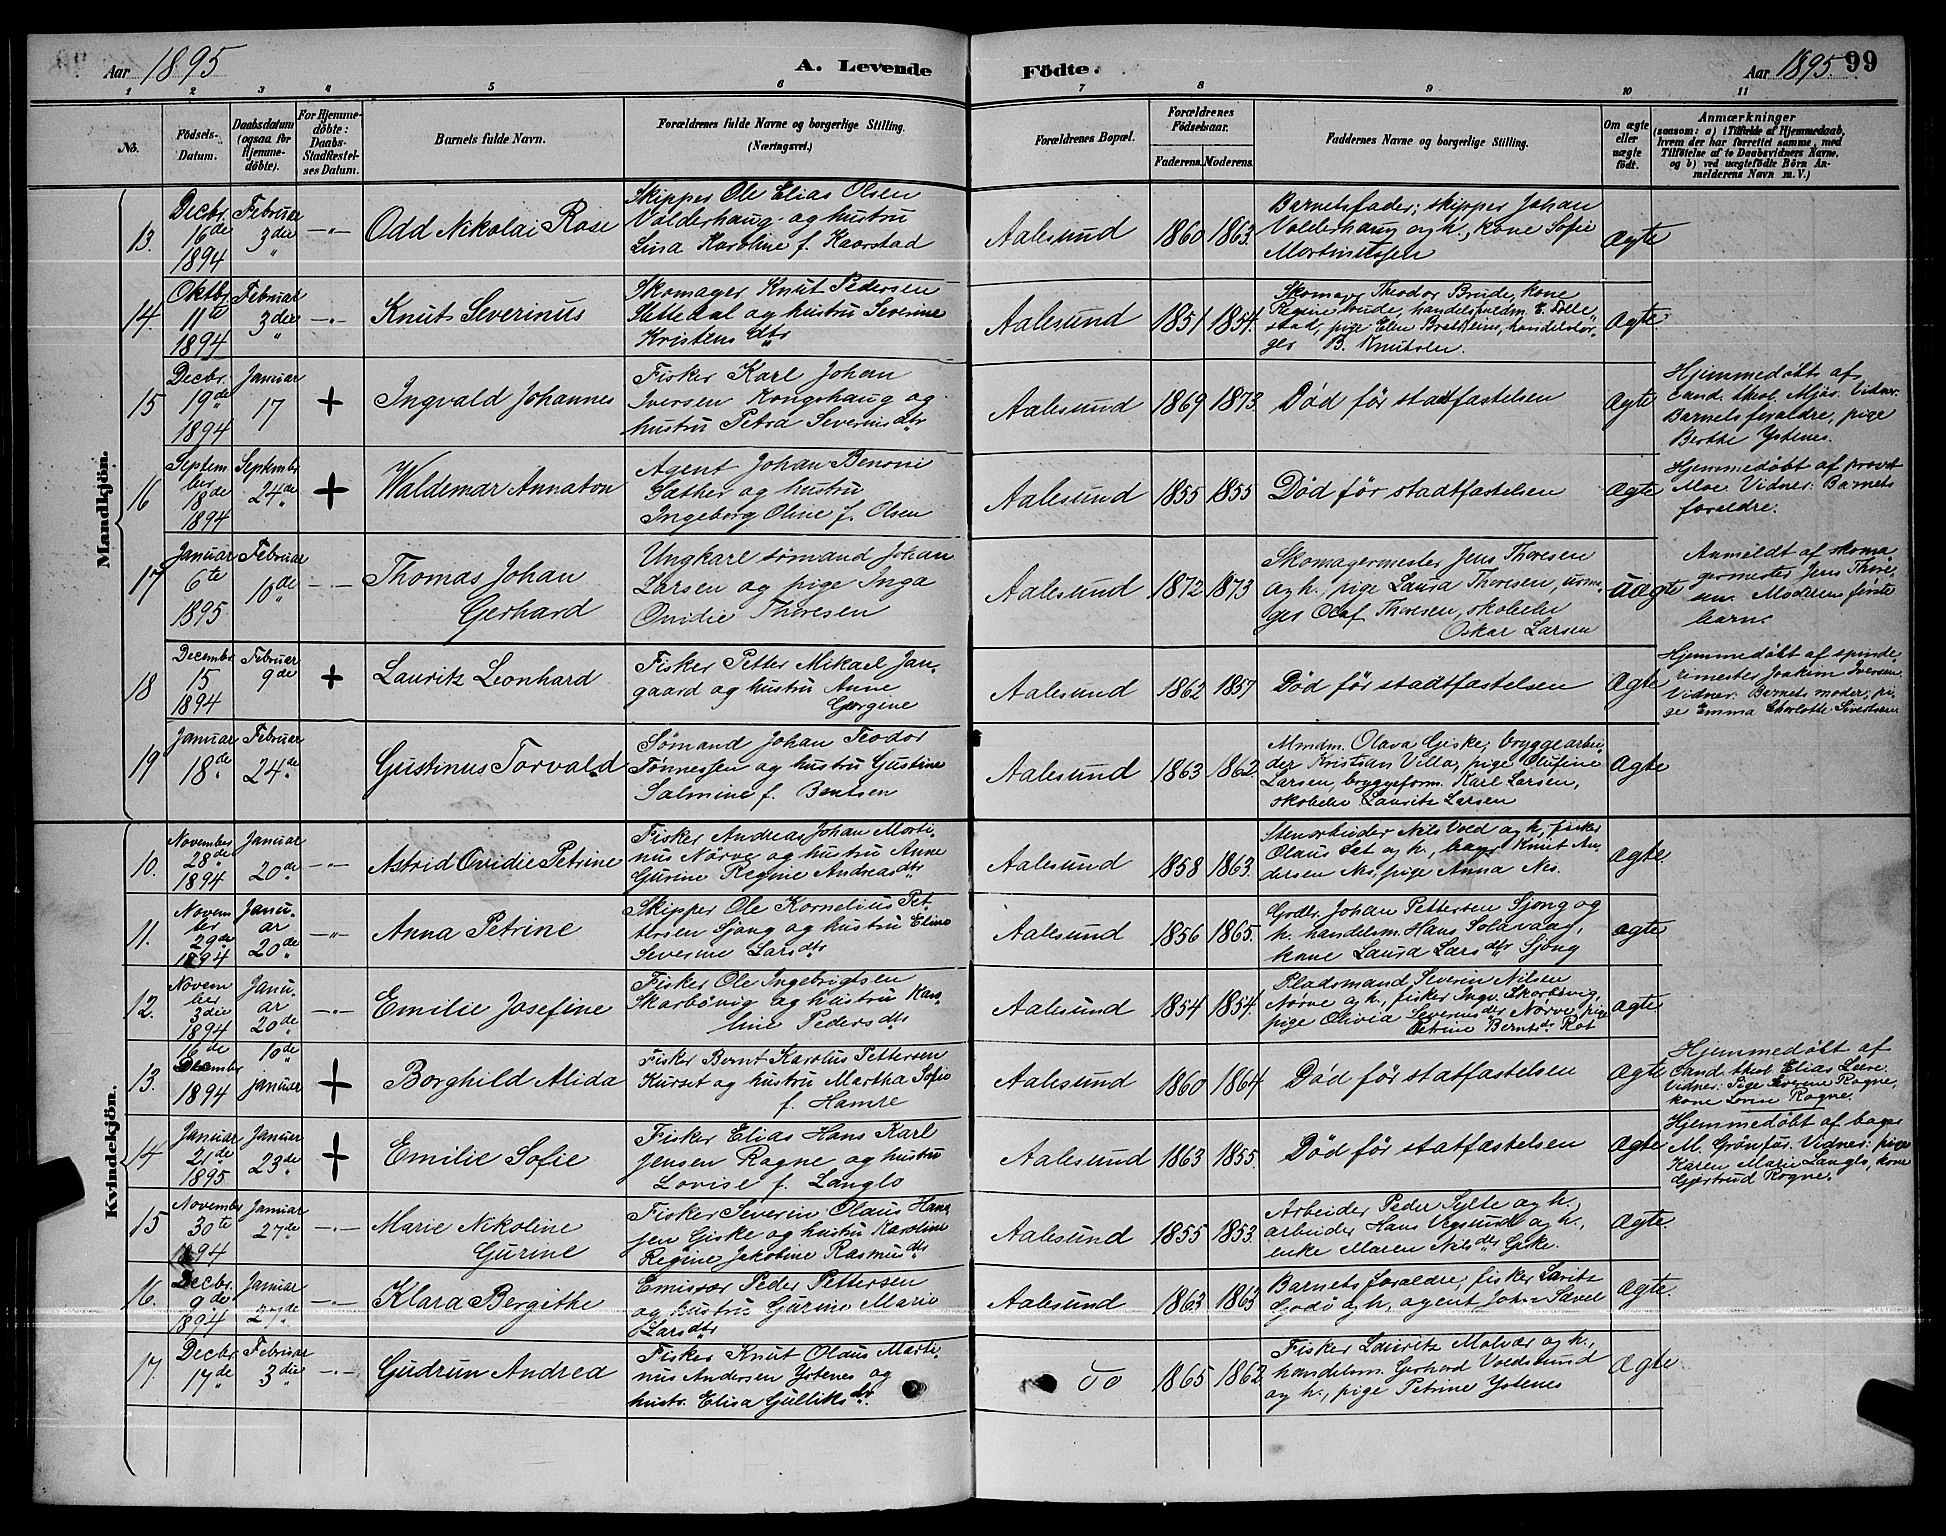 Aar 1895
A. Levende
Födte.
Aar 1895
99
1 2 3 4 5 6 7 8 9 10 11
No.
Födsels-Datum.
Daabsdatum (ogsaa för Hjemmedöbte).
For Hjemmedöbte: Daabs-Stadfæstelses Datum.
Barnets fulde Navn.
Forældrenes fulde Navne og borgerlige Stilling. (Næringsvei.)
Forældrenes Bopæl.
Forældrenes Födselsaar.
Faderens. Moderens.
Faddernes Navne og borgerlige Stilling.
Om ægte eller uægte födt.
Anmærkninger
(saasom: a) i Tilfælde af Hjemmedaab,
hvem der har forrettet samme, med
Tilföielse af to Daabsvidners Navne,
og b) ved uægtefödte Börn Anmelderens Navn m. V.)
Mandkjön.
13. Decbr. 16de 1894
Februar 3die
Odd Nikolai Rose
Skipper Ole Elias Olsen
Valderhaug og hustru
Lina Karoline f. Kaarstad
Aalesund 1860 1863.
Barnets fader; skipper Johan
Valderhaug og h., kone Sofie
Martinussen
Ægte
14. Oktbr. 11te 1894
Februar 3die
Knut Severinus
Skomager Knut Pedersen
Sættedal og hustru Severine
Kristensdtr
Aalesund 1851 1854.
Skomager Theodor Brude, kone
Regine Brude, handelsfuldm. E. Tolle-
stad, pige Elen Bratheim, handelsbor-
ger B. Knutsen.
Ægte
15 Decbr. 19de 1894
Januar 17
+
Ingvald Johannes
Fisker Karl Johan
Iversen Kongshaug og
hustru Petra Severinsdtr
Aalesund 1869 1873.
Död før stadfæstelsen
Ægte
Hjemmedøbt af
cand. theol. Mjøs. Vidner:
Barnets forældre, pige
Berthe Ystenes.
16 September 18de 1894
Septembr 24de
+
Waldemar Annaton
Agent Johan Benoni
Sæther og hustru
Ingeborg Oline f. Olsen
Aalesund 1855 1855
Død før stadtfæstelsen
Ægte
Hjemmedøbt af provst
Moe. Vidner: Barnets
forældre.
17 Januar 6te 1895
Februar 10de
Thomas Johan
Gerhard
Ungkarl sømand Johan
Larsen og pige Inga
Ovidie Thoresen
Aalesund 1872 1873
Skomagermester Jens Thoresen
og h., pige Laura Thoresen, urma-
ger Olaf Thoresen, skobeler
Oskar Larsen
uægte
Anmeldt af skoma-
germester Jens Thore-
sen. Moderens første
barn.
18 Decembr 15 1894
Februar 9de
+
Lauritz Leonhard
Fisker Petter Mikael Jan-
gaard og hustru Anne
Gjørgine
Aalesund 1862 1857
Død før stadtfæstelsen
Ægte
Hjemmedøbt af spinde-
rimester Joakim Iversen
Vidner: Barnets moder, pi-
ge Emma Charlotte Sivertsen
19 Januar 18de
Februar 24de
Gustinus Torvald
Sømand Johan Teodor
Tønnessen og hustru Gustine
Salmine f. Bentsen
Aalesund 1863 1862
Mndm. Olava Giske, bryggearbei-
der Kristian Villa, pige Olufine
Larsen, bryggeform. Karl Larsen,
skobeler Lauritz Larsen
Ægte
Kvindekjön.
10. November 28de 1894
Januar 20de
Astrid Ovidie Petrine
Fisker Andreas Johan Marti-
nus Nørve og hustru Anne
Gurine Regine Andreasdtr
Aalesund 1858 1863.
Stenarbeider Nils Vold og h., fisker
Olaus Sæt og h., bager Knut An-
dersen Nes, pige Anna Nes.
Ægte
11. November 29de 1894
Januar 20de
Anna Petrine
Skipper Ole Kornelius Pet-
tersen Sjong og hustru Eline
Severine Larsdtr
Aalesund 1856 1865.
Grdbr. Johan Pettersen Sjong og
h. handelsm. Hans Solavaag,
kone Laura Larsdtr Sjong
Ægte
12. November 3die 1894
Januar 20de
Emilie Josefine
Fisker Ole Ingebrigtsen
Skarbövig og hustru Karo-
line Pedersdtr
Aalesund 1854 1854.
Pladsmand Severin Nilsen
Nørve og h., fisker Ingv. Skarbøvig,
pige Olivia Severinsdtr Nørve, pige
Petrine Berntsdtr Rot
Ægte
13. 16de December 1894
10de januar
+
Borghild Alida
Fisker Bernt Karolus Pettersen
Kurset og hustru Martha Sofie
f. Hamre
Aalesund 1860 1864
Død før statfæstelsen
Ægte
Hjemmedøbt af
Cand. theol. Elias
Vidner: Pige Severine Rogne,
kone Lovise Rogne.
14 Januar 21de 1895
Januar 23de
+
Emilie Sofie
Fisker Elias Hans Karl
Jensen Rogne og hustru
Lovise f. Langlo
Aalesund 1863 1855.
Død før statfæstelsen
Ægte
Hjemmedøbt af bager
M. Grönfur. Vidner: pige
Karen Marie Langlo, kone
Gjertrud Rogne.
15 November 30te 1894
Januar 27de
Marie Nikoline
Gurine
Fisker Severin Olaus Han-
sen Giske og hustru Karoline
Regine Jakobine Rasmusdtr
Aalesund 1855 1853.
Arbeider Peder Sylte og h.,
arbeider Hans Vegsund og h.,
enke Maren Nilsdtr Giske.
Ægte
16. Decbr. 9de 1894
Januar 27de
Klara Bergithe
Emissær Peder Pettersen
og hustru Gurine Marie
Larsdtr
Aalesund 1863 1863
Barnets forældre, fisker Lauritz
Godø og h., agent John Sævel
Ægte.
17. Decbr. 17de
Februar 3die
Gudrun Andrea
Fisker Knut Olaus Marti-
nus Andersen Ystenes og
hustr. Elisa Gulliksdtr.
do 1865 1862
Fisker Lauritz Molvær og h.,
handelsm. Gerhard Voldsund
og h., pige Petrine Ystenes
Ægte